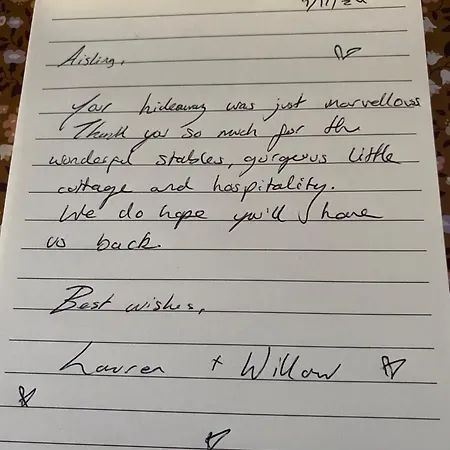 Aisling,
Your hideaway was just marvellous
Thank you so much for the
wonderful stables, gorgeous little
cottage and hospitality.
We do hope you'll have
us back.
Best wishes,
Lauren + Willow